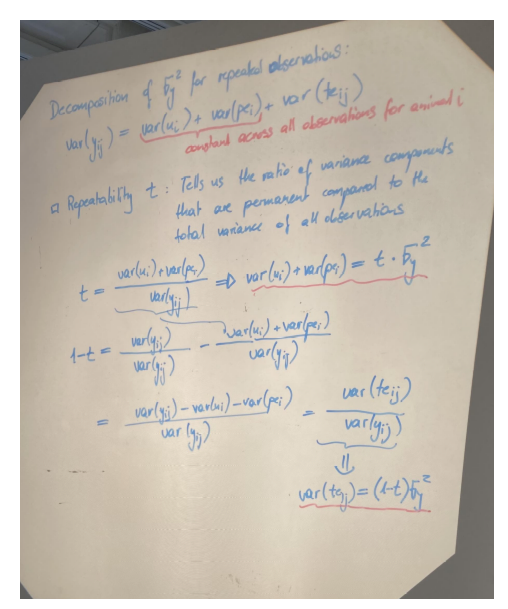 Decomposition of σy² for repeated observations:
var(yij) = var(ui) + var(pei) + var(teij)
constant across all observations for animal i
□ Repeatability t : Tells us the ratio of variance components
that are permanent compared to the
total variance of all observations
t = (var(ui) + var(pei)) / var(yij) ⇒ var(ui) + var(pei) = t · σy²
1-t = var(yij) / var(yij) - (var(ui) + var(pei)) / var(yij)
= (var(yij) - var(ui) - var(pei)) / var(yij) = var(teij) / var(yij)
⇓
var(teij) = (1-t) σy²